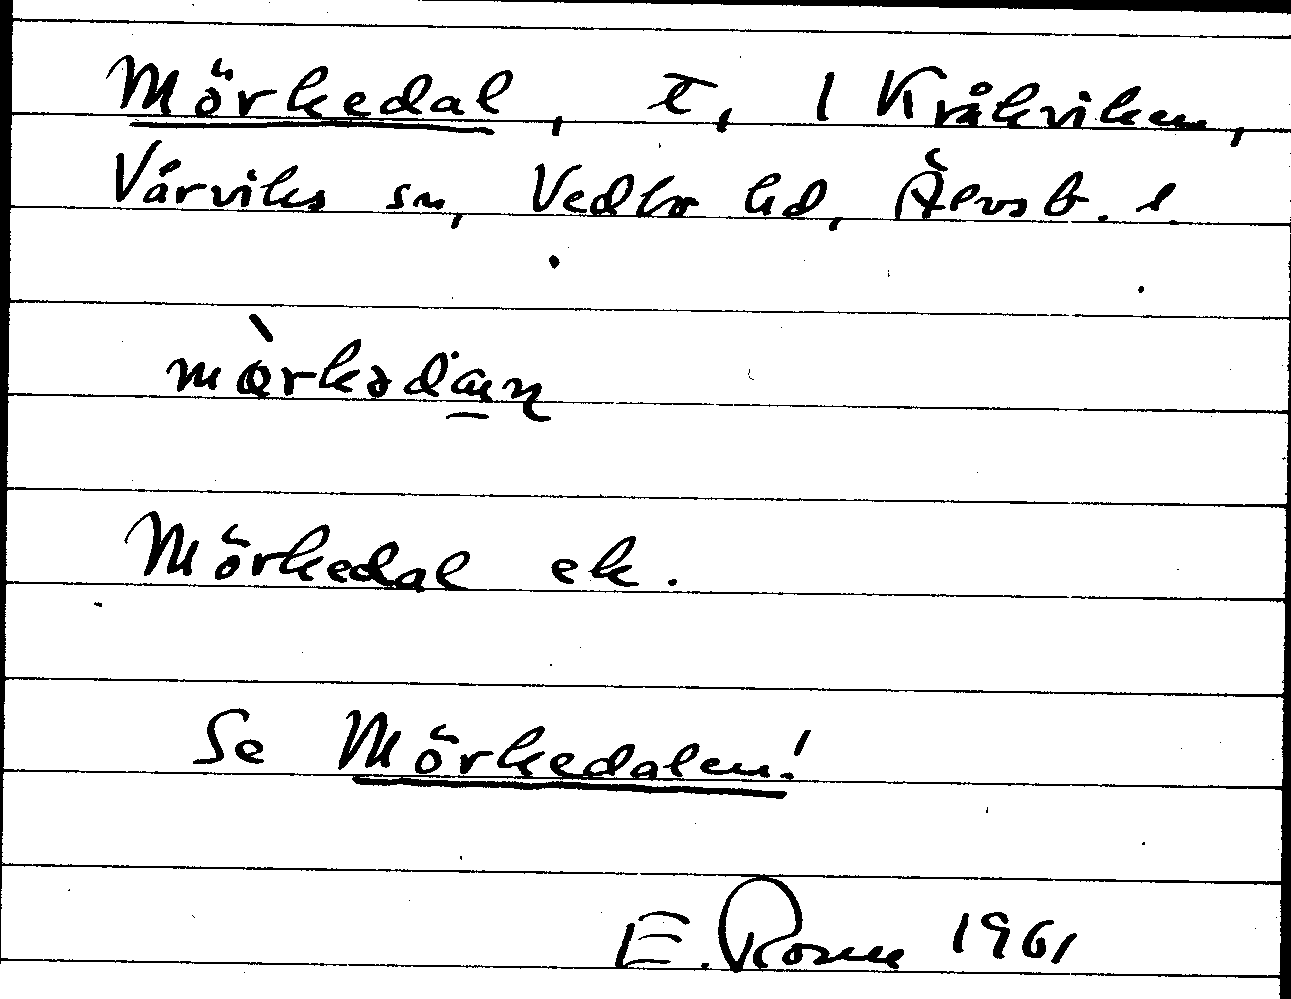 Mörkedal, t, 1 Kråkviken,
Vårviks sn, Vedbo hd, Älvsb. l.
Mörkedal ek.
Se Mörkedalen!
E. Rosen 1961